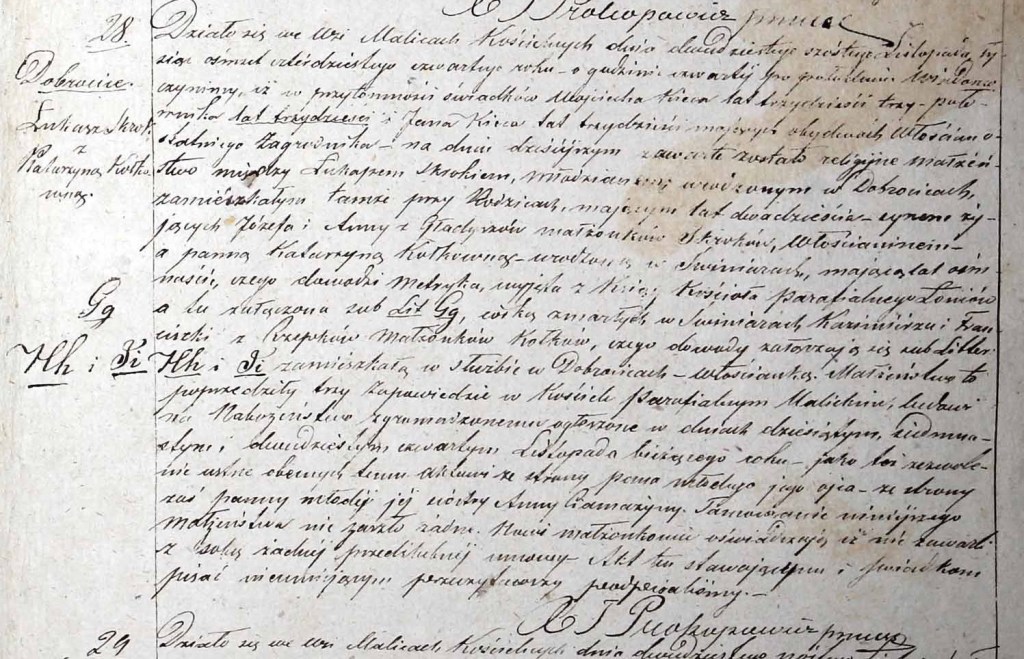 X J Prokopowicz
28
Działo się we Wsi Malicach Kościelnych dnia dwudziestego szóstego Listopada, ty-
siąc ośmset czterdziestego czwartego roku – o godzinie czwartej po południu Wiadomo
Dobrocice.
czyniemy, iż w przytomności świadków Wojciecha Kieca lat trzydzieści trzy – 
Łukasz Skrok
lat trzydzieści i Jana Kieca lat trzydzieści mających obydwóch Włościan o-
z
Zagrodnika – na dniu dzisiejszym zawarte zostało religijne małżeń-
Katarzyną Kotko-
wną.
stwo między Łukaszem Skrokiem, młodzianem urodzonym w Dobrocicach,
zamieszkałym tamże przy Rodzicach, mającym lat dwadzieścia – synem ży-
jących Józefa i Anny z Gładyszów małżonków Skroków, Włościaninem –
a panną Katarzyną Kotkowną – urodzoną w Swiniarach, mającą lat ośm-
naście, czego dowodzi Metryka, wyjęta z Księg Kościoła Parafialnego Łoniów
Gg
a tu załączona sub Lit Gg, córką zmarłych w Swiniarach, Kazimierza i Fran-
ciszki z Małżonków Kotków, czego dowody załączają się sub Litter.
Hh i Ii
Hh i Ii zamieszkałą w służbie w Dobrocicach – włościanką. Małżeństwo to
poprzedziły trzy Zapowiedzie w Kościele Parafialnym Malickim, ludowi
na Nabożeństwo zgromadzonemu ogłoszone w dniach dziesiątym, siedmna-
stym i dwudziestym czwartym Listopada bieżącego roku – jako też zezwole-
nie ustne obecnych temu Aktowi ze strony pana młodego jego ojca – ze strony
zaś panny młodej jej siostry Anny Tamowanie niniejszego
Małżeństwa nie zaszło żadne. Nowi małżonkowie oświadczają iż nie zawarli
z sobą żadnej przedślubnej umowy Akt ten stawającym i świadkom
pisać nieumiejącym przeczytawszy podpisaliśmy. –
X J Prokopowicz
29
Działo się we Wsi Malicach Kościelnych dnia